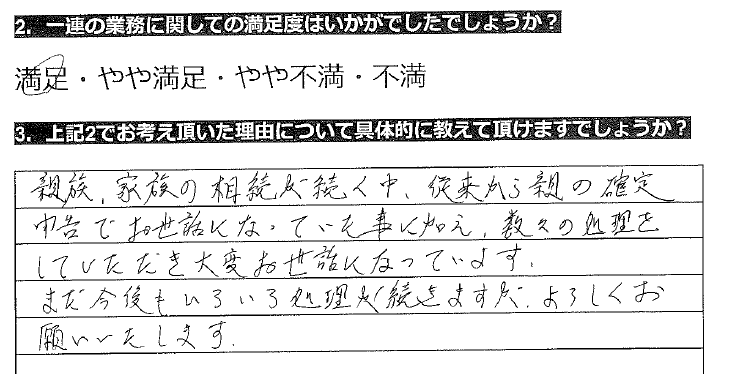 2. 一連の業務に関しての満足度はいかがでしたでしょうか？
満足・やや満足・やや不満・不満
3. 上記2でお考え頂いた理由について具体的に教えて頂けますでしょうか？
親族、家族の相続が続く中、従来から親の確定
申告でお世話になっていた事に加え、数々の処理を
していただき大変お世話になっています。
まだ今後もいろいろ処理が続きますが、よろしくお
願いいたします。